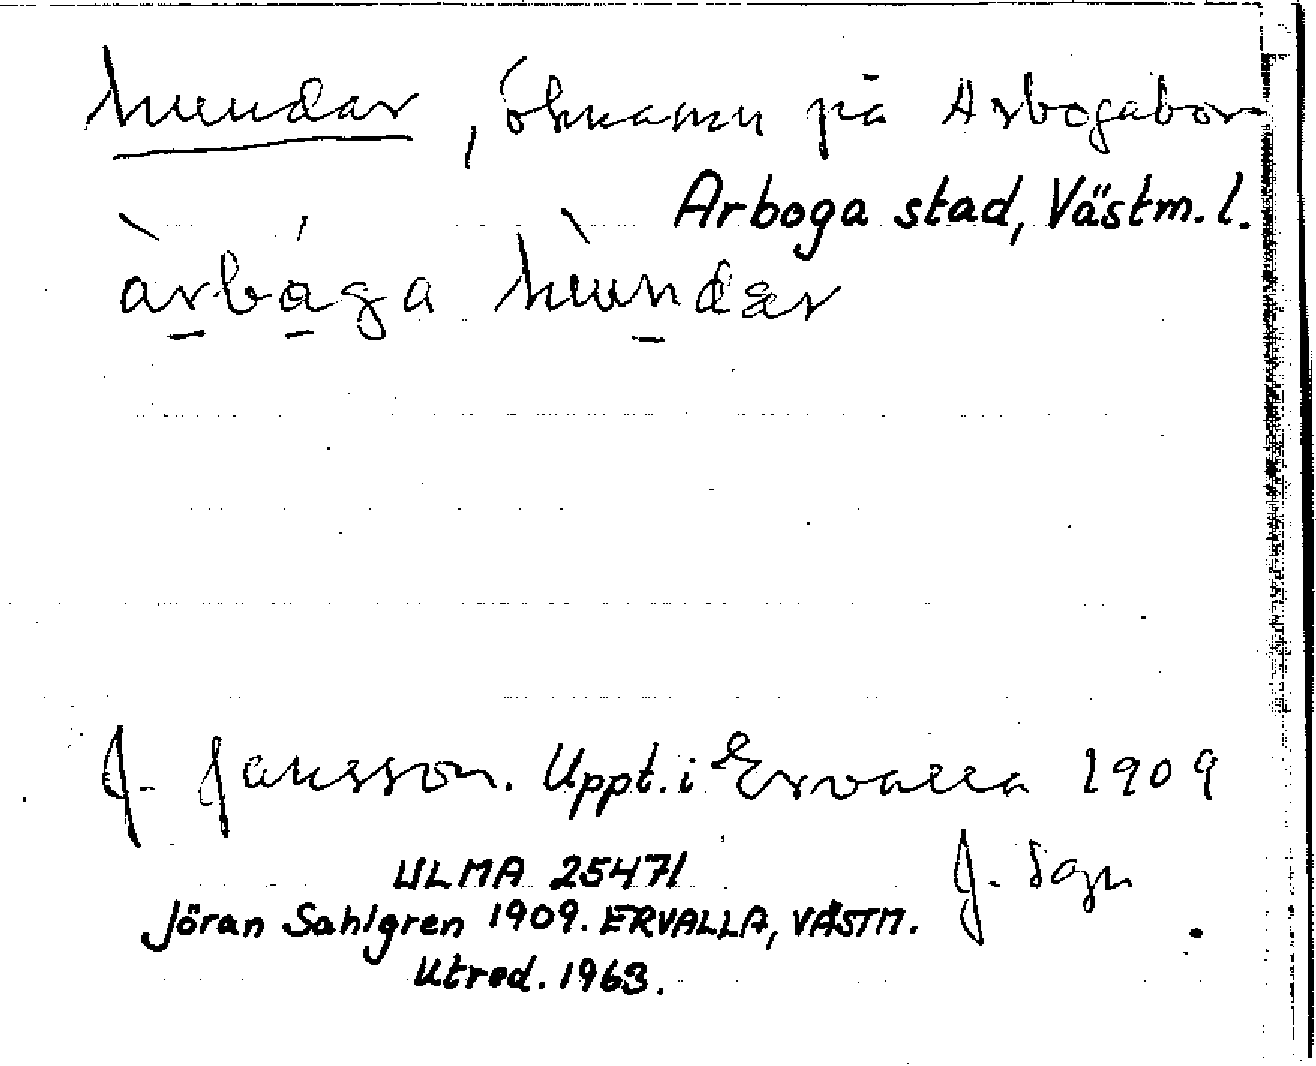 hundar, öknamn på Arbogabor
Arboga stad, Västm. l.
àrbåga hùndar
J. Jansson. Uppt. i Ervalla 1909
J. Sgn
ULMA 25471
Jöran Sahlgren 1909. ERVALLA, VÄSTM.
Utred. 1963.